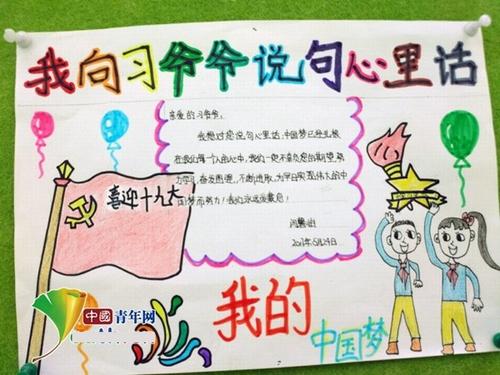 我向习爷爷说句心里话
亲爱的习爷爷：
我想对您说句心里话，中国梦已经扎根
在我们每个人的心中，我们一定不辜负您的期望，努
力学习，奋发图强，不断进取，为早日实现伟大的中
国梦而努力！我们永远爱戴您！
2017年5月24日
喜迎十九大！
我的
中国梦
中國青年网